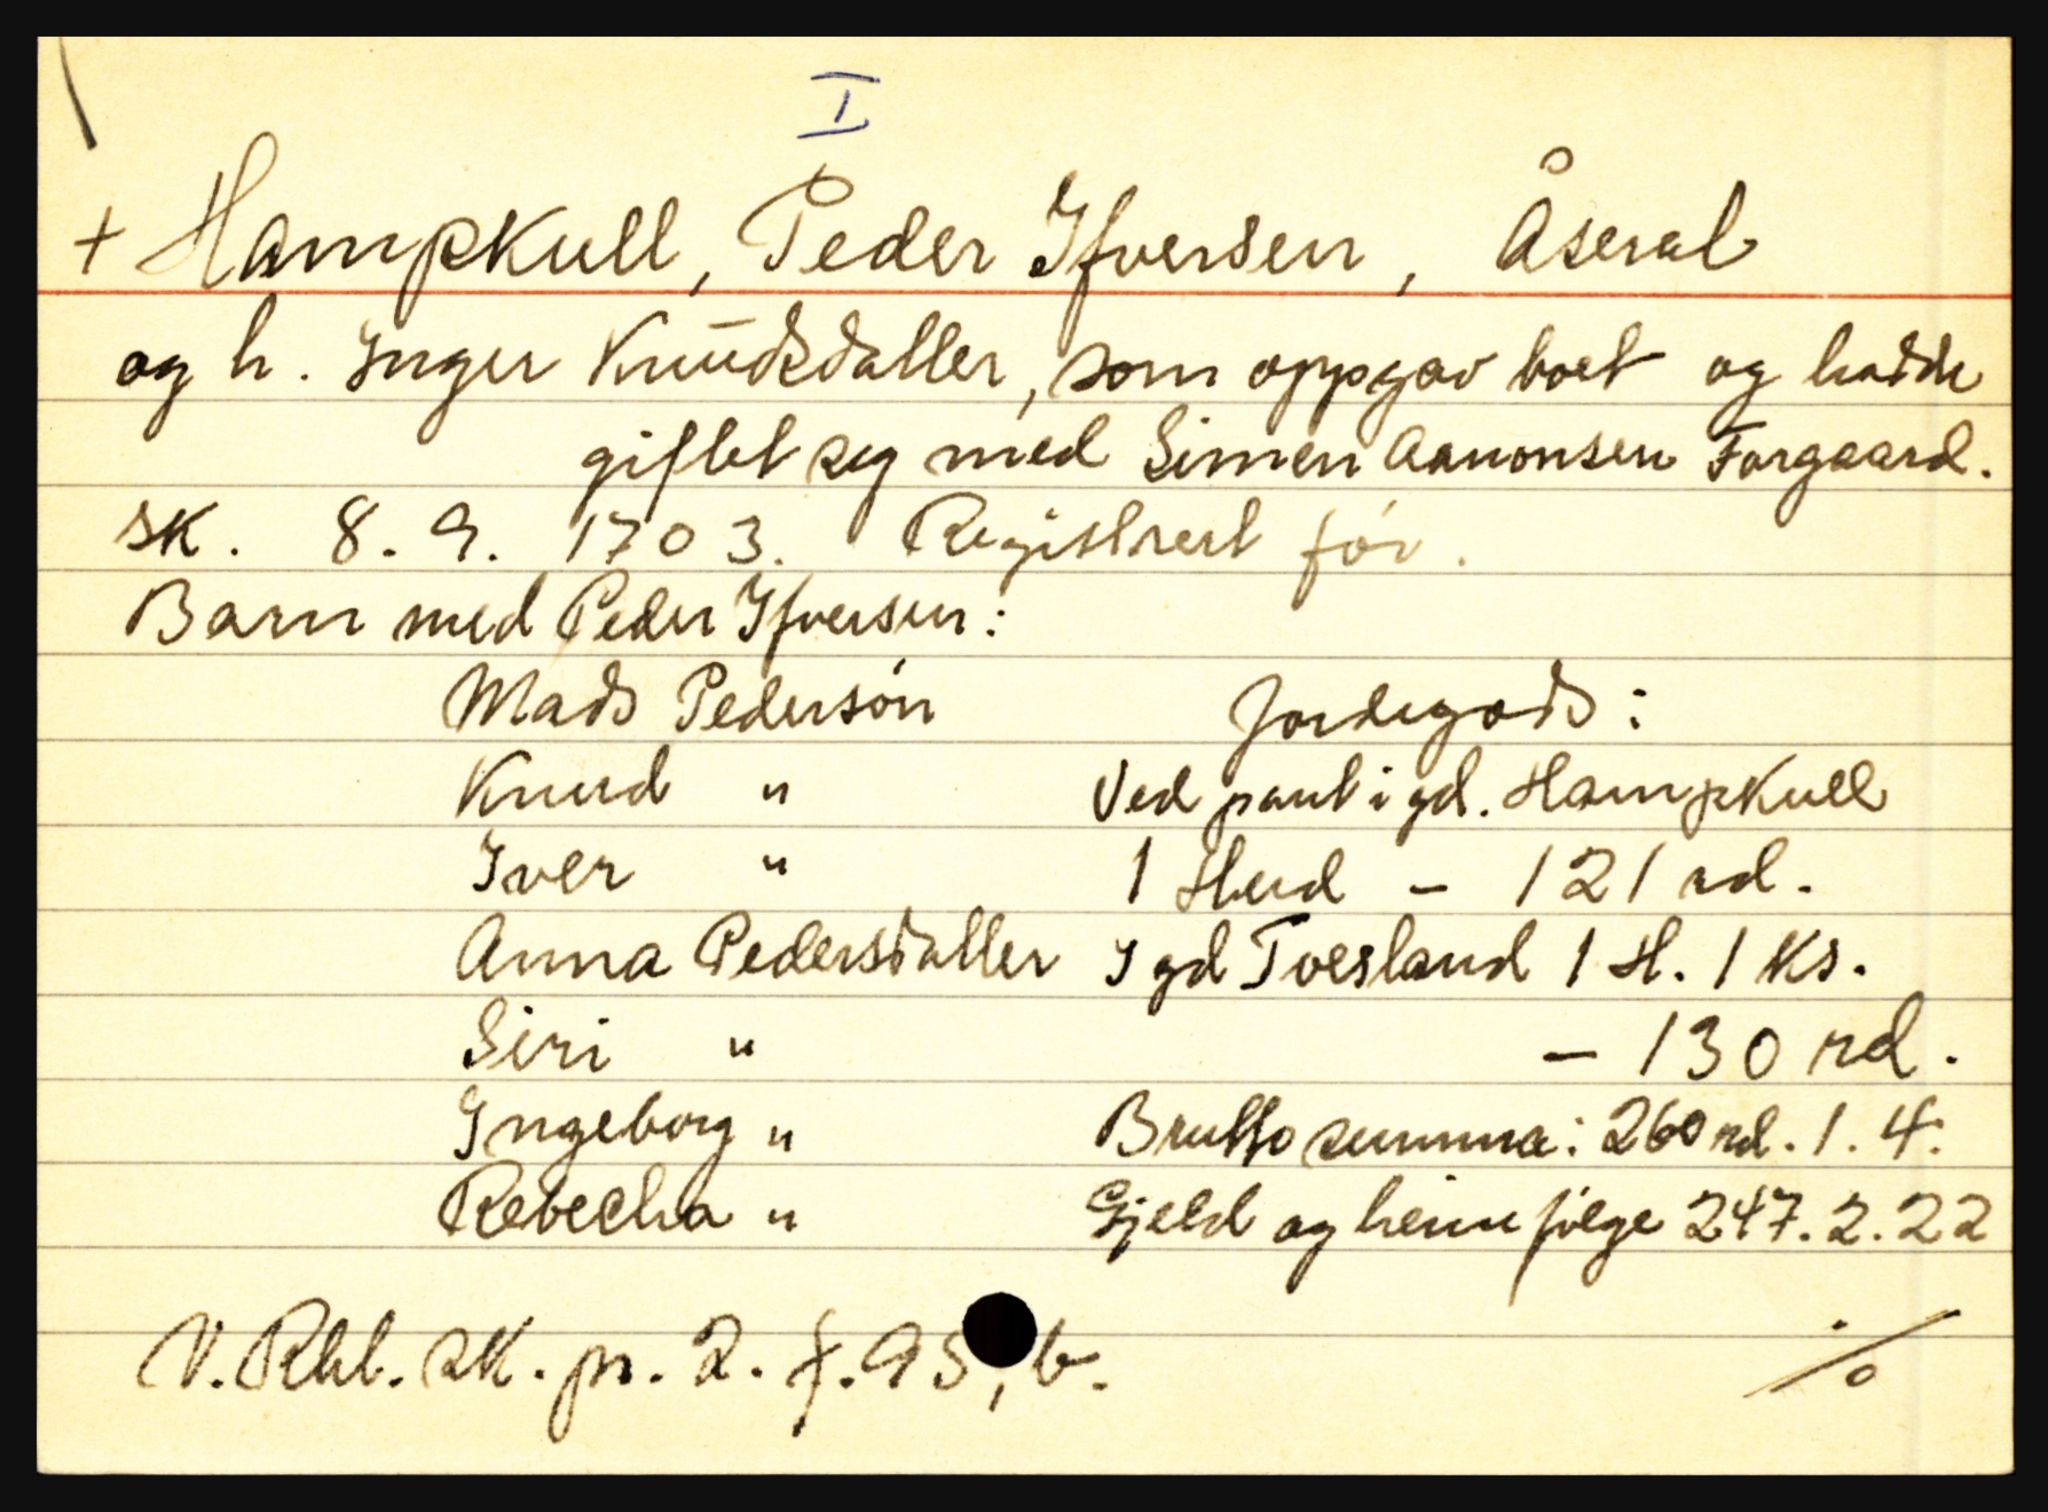 I
+ Hampkull, Peder Ifversen, Åseral
og h. Inger Knudsdatter, som oppgav boet og hadde
giftet seg med Simen Aanonsen Forgaard.
Sk. 8.9. 1703. Registrert før.
Barn med Peder Ifversen:
Mads Pedersøn
Knud "
Iver "
Anna Pedersdatter
Siri "
Ingeborg "
Rebecha "
Jordegods:
Ved pant i gd. Hampkull
1 Hud - 121 rd.
I gd Tvesland 1 H. 1 Ks.
- 130 rd.
Brutto summa: 260 rd. 1. 4.
Gjeld og heimfølge 247. 2. 22
V. Rbl. sk. pr. 2. f. 95, b.